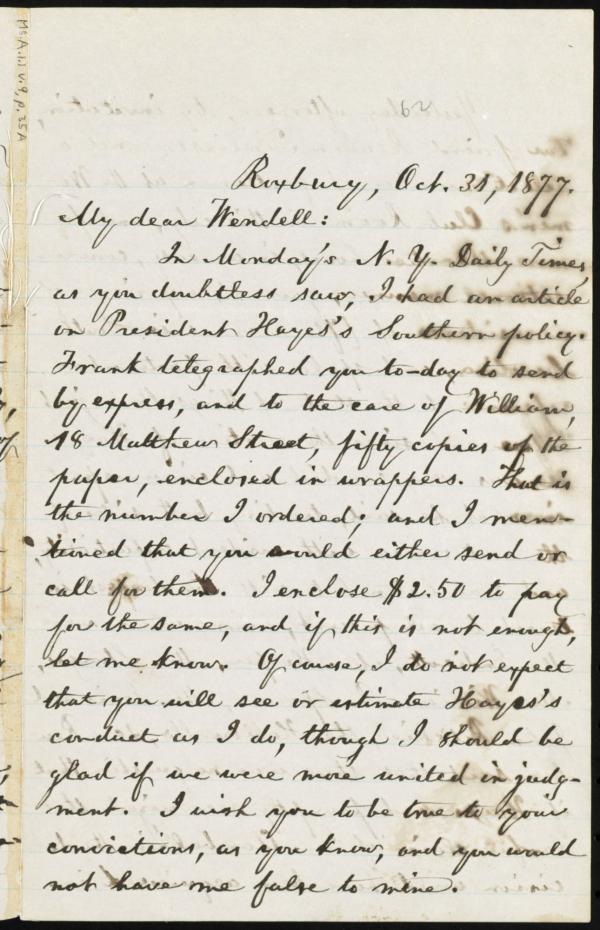 Ms.A.1.1 v.9, p.35A
62
Roxbury, Oct. 31, 1877.
My dear Wendell:
In Monday's N. Y. Daily Times,
as you doubtless saw, I had an article
on President Hayes's Southern policy.
Frank telegraphed you to-day to send
by express, and to the care of William,
18 Matthew Street, fifty copies of the
paper, enclosed in wrappers. That is
the number I ordered; and I men-
tioned that you would either send or
call for them. I enclose $2.50 to pay
for the same, and if this is not enough,
let me know. Of course, I do not expect
that you will see or estimate Hayes's
conduct as I do, though I should be
glad if we were more united in judg-
ment. I wish you to be true to your
convictions, as you know, and you would
not have me false to mine.